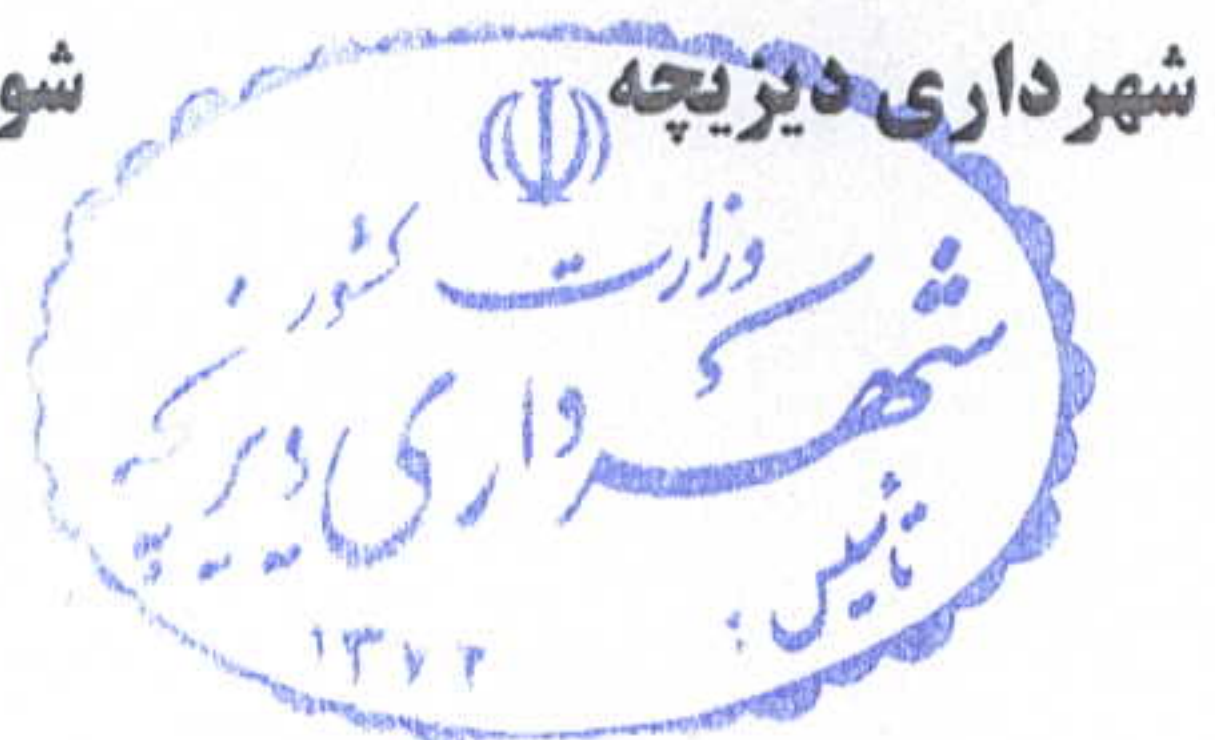 شهرداری دیزیچه شو
وزارت کشور
شهرداری دیزیچه
تأسیس :
۱۳۷۲